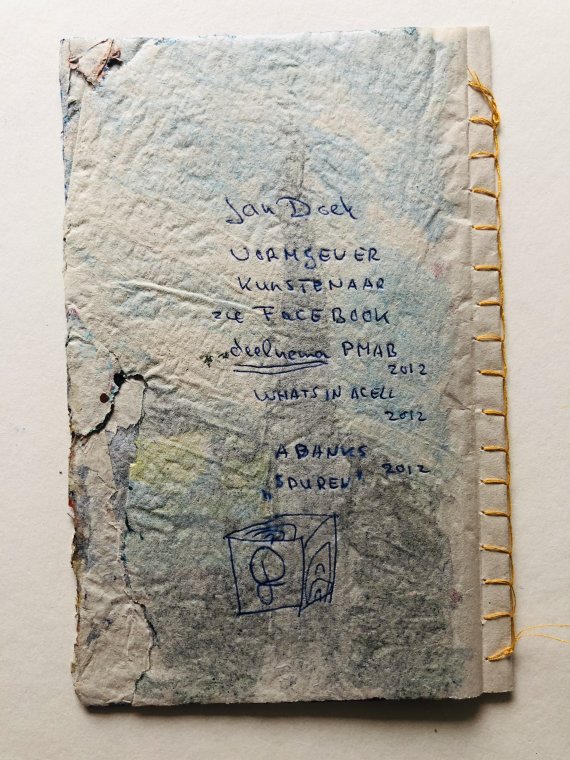 Jan Doek
VORMGEVER
KUNSTENAAR
zie FACEBOOK
deelname PMAB
2012
WHATS IN A CELL
2012
ABANKS
„SPUREN" 2012